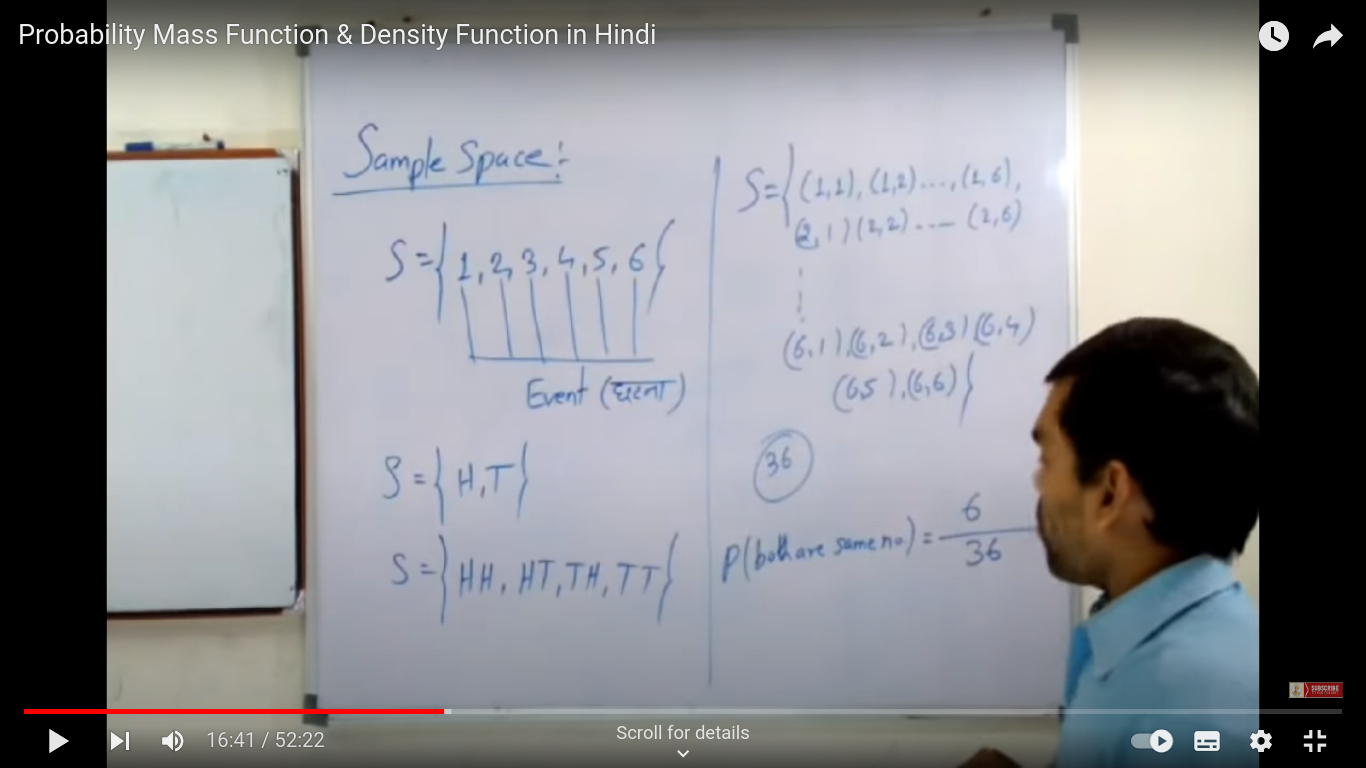 Probability Mass Function & Density Function in Hindi
Sample Space:-
S={1, 2, 3, 4, 5, 6}
Event (घटना)
S={H,T}
S={HH, HT, TH, TT}
S={(1,1), (1,2)...., (1,6),
(2,1) (2,2) ..... (2,6)
(6,1), (6,2), (6,3) (6,4)
(6,5), (6,6)}
36
P(both are same no.) = 6/36
SUBSCRIBE
16:41 / 52:22
Scroll for details